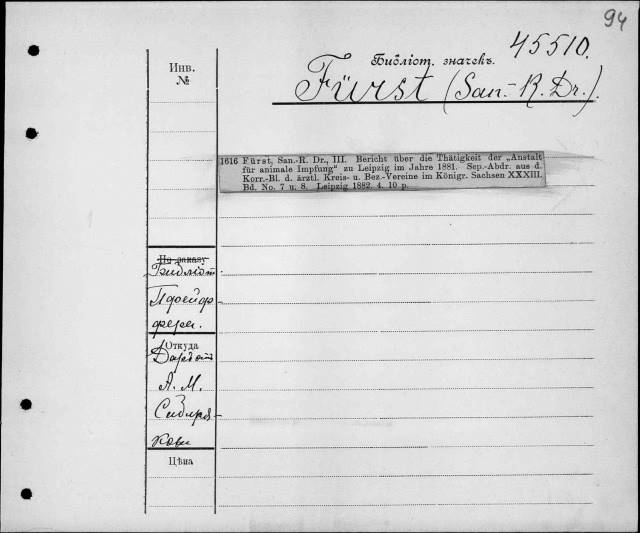 94
45510.
Библіот. значекъ.
Fürst (San.-R. Dr.)
Инв.
№
1616 Fürst, San.-R. Dr., III. Bericht über die Thätigkeit der „Anstalt
für animale Impfung" zu Leipzig im Jahre 1881. Sep.-Abdr. aus d.
Korr.-Bl. d. ärztl. Kreis- u. Bez.-Vereine im Königr. Sachsen XXXIII.
Bd. No. 7 u. 8. Leipzig 1882. 4. 10 p.
По заказу
Библіот
Пфейф
фера.
Откуда
А. М.
Сибиря-
кова
Цѣна